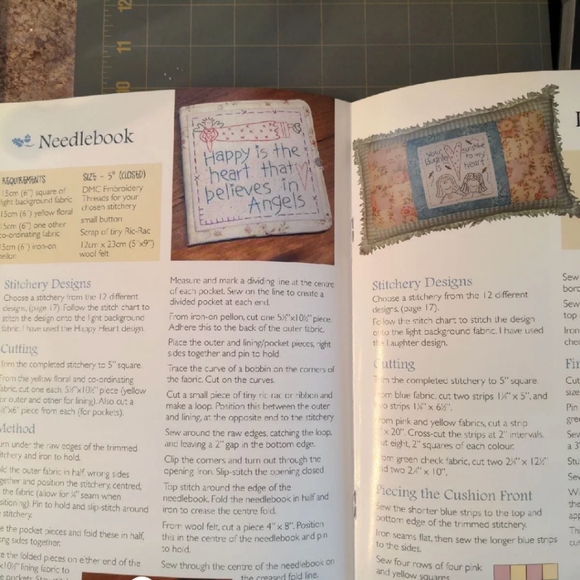 12
11
10
Needlebook
REQUIREMENTS
15cm (6") square of
light background fabric
15cm (6") yellow floral
15cm (6") one other
co-ordinating fabric
15cm (6") iron-on
SIZE - 5" (CLOSED)
DMC Embroidery
Threads for your
chosen stitchery
small button
Scrap of tiny Ric-Rac
12cm x 23cm (5"x9")
wool felt
Happy is the
heart that
believes in
Angels
Stitchery Designs
Choose a stitchery from the 12 different
designs, (page 17). Follow the stitch chart to
stitch the design onto the light background
fabric. I have used the Happy Heart design.
Cutting
Trim the completed stitchery to 5" square.
From the yellow floral and co-ordinating
fabric, cut one each, 5½"x10½" piece (yellow
for outer and other for lining). Also, cut a
piece from each (for pockets).
Method
Turn under the raw edges of the trimmed
stitchery and iron to hold.
Fold the outer fabric in half, wrong sides
together and position the stitchery, centred,
the fabric (allow for ¼" seam when
positioning). Pin to hold and slip-stitch around
the stitchery.
the pocket pieces and fold these in half,
sides together.
the folded pieces on either end of the
lining fabric to
Measure and mark a dividing line at the centre
of each pocket. Sew on the line to create a
divided pocket at each end.
From iron-on pellon, cut one 5½"x10½" piece.
Adhere this to the back of the outer fabric.
Place the outer and lining/pocket pieces, right
sides together and pin to hold.
Trace the curve of a bobbin on the corners of
the fabric. Cut on the curves.
Cut a small piece of tiny ric-rac or ribbon and
make a loop. Position this between the outer
and lining, at the opposite end to the stitchery
Sew around the raw edges, catching the loop,
and leaving a 2" gap in the bottom edge.
Clip the corners and turn out through the
opening. Iron. Slip-stitch the opening closed.
Top stitch around the edge of the
needlebook. Fold the needlebook in half and
iron to crease the centre fold.
From wool felt, cut a piece 4" x 8". Position
this in the centre of the needlebook and pin
to hold.
Sew through the centre of the needlebook on
the creased fold line.
your
laughter
is
sunshine
to my
heart
Stitchery Designs
Choose a stitchery from the 12 different
designs, (page 17).
Follow the stitch chart to stitch the design
onto the light background fabric. I have used
the Laughter design.
Cutting
Trim the completed stitchery to 5" square.
From blue fabric, cut two strips 1¼" x 5", and
two strips 1¼" x 6½".
From pink and yellow fabrics, cut a strip
x 20". Cross-cut the strips at 2" intervals.
Cut eight, 2" squares of each colour.
From green check fabric, cut two 2¼" x 12½"
and two 2¼" x 10".
Piecing the Cushion Front
Sew the shorter blue strips to the top and
bottom edge of the trimmed stitchery.
Iron seams flat, then sew the longer blue strips
to the sides.
Sew four rows of four pink
and yellow squares
Sew
Sew
top
Iron
Fin
Pin
Sew
Stu
Sew